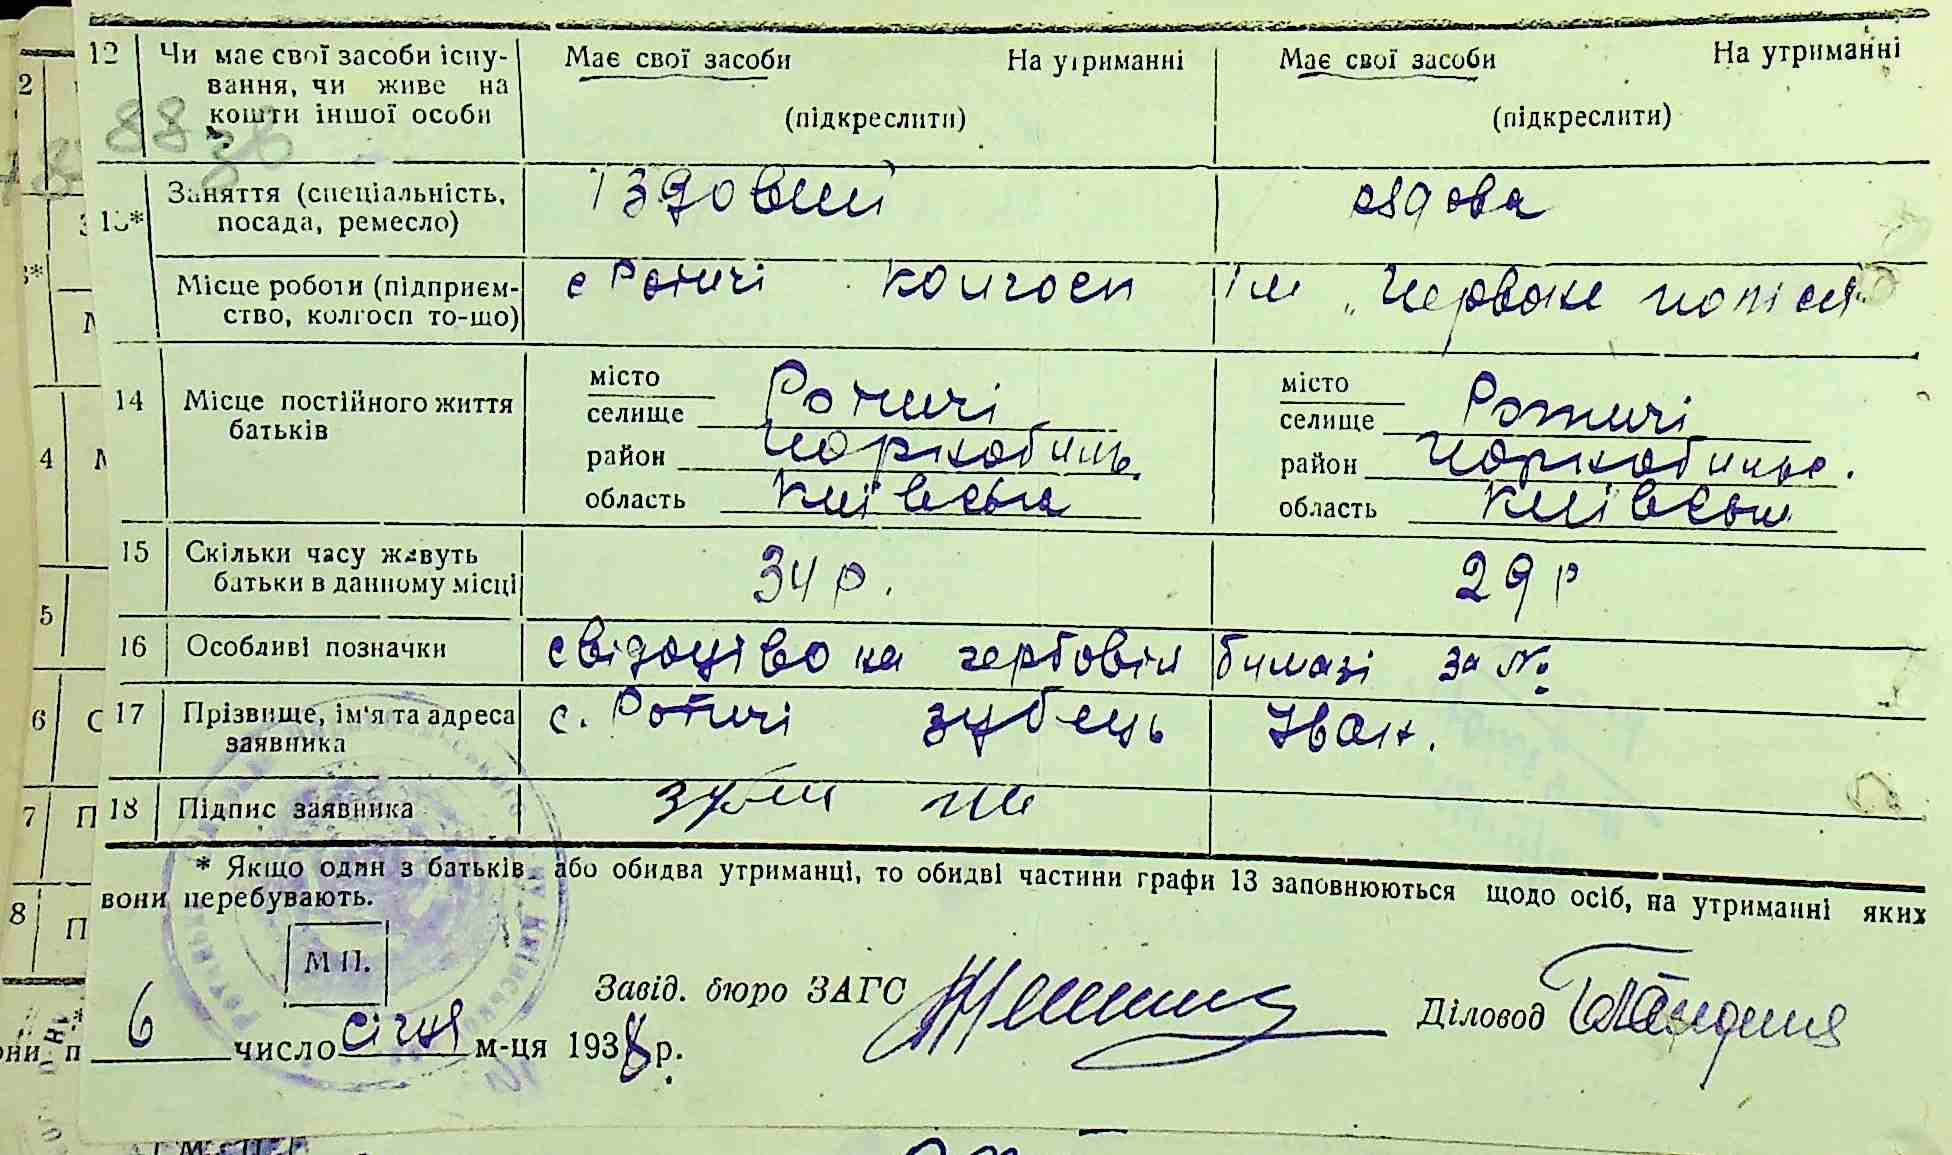 12 Чи має свої засоби існу- Має свої засоби На утриманні Має свої засоби На утриманні
вання, чи живе на
кошти іншої особи (підкреслити) (підкреслити)
88
86
13* Заняття (спеціальність, їздовий
посада, ремесло)
Місце роботи (підприєм- с Ротичі колгосп ім „Червоне
ство, колгосп то-що)
14 Місце постійного життя
батьків
місто
селище Ротичі
район Чорнобиль.
область Київська
місто
селище Ротичі
район Чорнобильс.
область Київськ
15 Скільки часу живуть 34 р. 29 р
батьки в данному місці
16 Особливі позначки свідоцтво на гербовім бумазі за №
17 Прізвище, ім'я та адреса с. Ротичі Зубець Іван.
заявника
18 Підпис заявника
* Якщо один з батьків або обидва утриманці, то обидві частини графи 13 заповнюються щодо осіб, на утриманні яких
вони перебувають.
М П.
Завід. бюро ЗАГС
Діловод
6 число січня м-ця 1938 р.
2
4
5
6
7
8